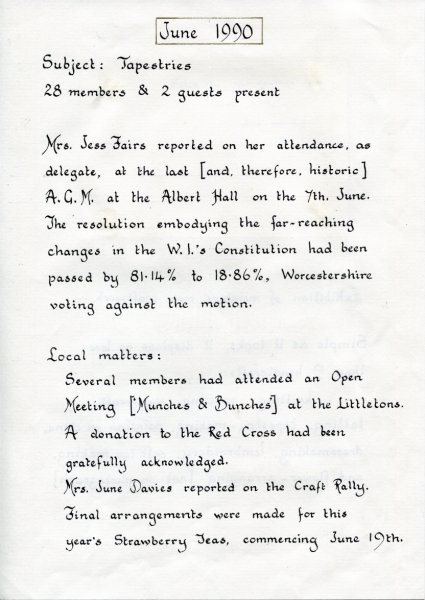 June 1990
Subject: Tapestries
28 members & 2 guests present
Mrs. Jess Fairs reported on her attendance, as
delegate, at the last [and, therefore, historic]
A.G.M. at the Albert Hall on the 7th. June.
The resolution embodying the far-reaching
changes in the W.I.'s Constitution had been
passed by 81·14% to 18·86%, Worcestershire
voting against the motion.
Local matters:
Several members had attended an Open
Meeting [Munches & Bunches] at the Littletons.
A donation to the Red Cross had been
gratefully acknowledged.
Mrs. June Davies reported on the Craft Rally.
Final arrangements were made for this
year's Strawberry Teas, commencing June 19th.